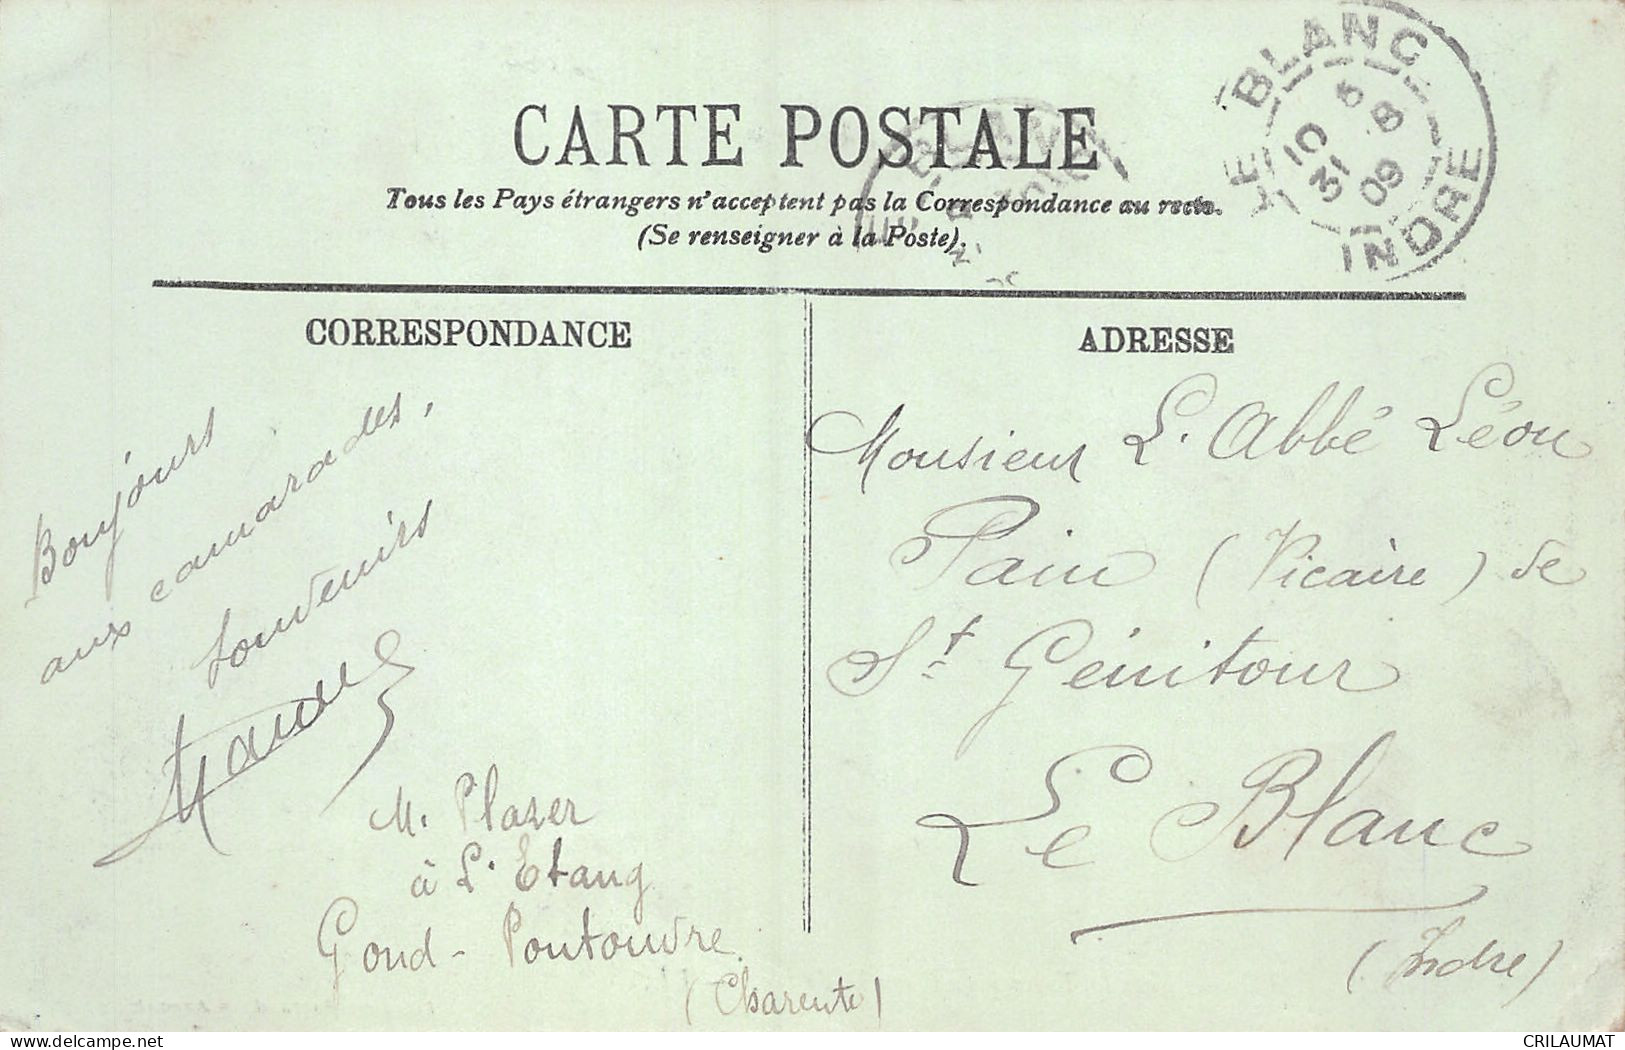 CARTE POSTALE
Tous les Pays étrangers n'acceptent pas la Correspondance au recto.
(Se renseigner à la Poste).
LE BLANC
10 8
31 8
09
INDRE
CORRESPONDANCE
Bonjours
aux camarades,
Souvenirs
M. Plaser
à L'Etang
Gond-Pontouvre
(Charente)
ADRESSE
Monsieur L'Abbé Léon
Pain (Vicaire) de
St Génitour
Le Blanc
(Indre)
delcampe.net
CRILAUMAT